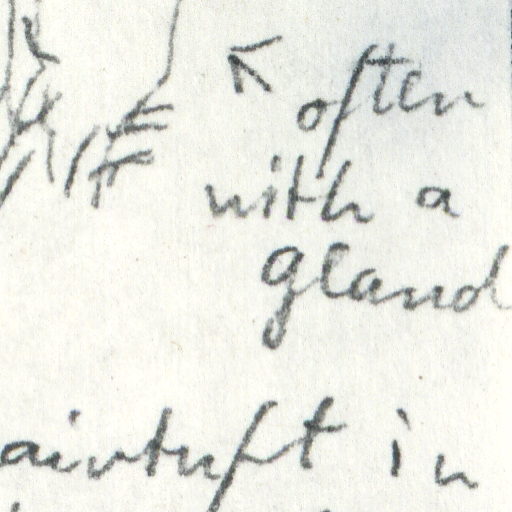 often
with a
gland
airtuft in